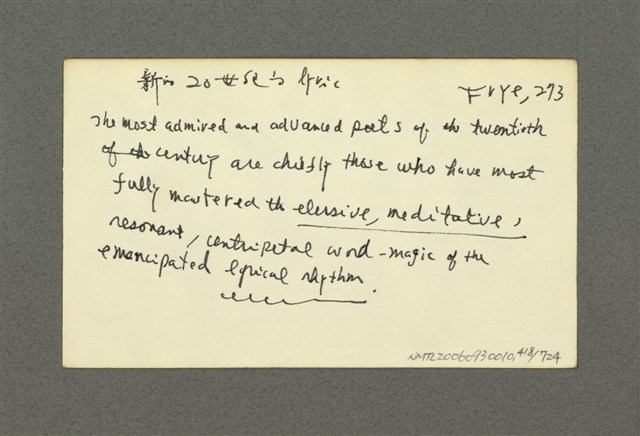 新的 20世纪的 lyric
Frye, 273
The most admired and advanced poets of the twentieth
of the century are chiefly those who have most
fully mastered the elusive, meditative,
resonant, centripetal word-magic of the
emancipated lyrical rhythm.
NMTL20060930010, 418/724